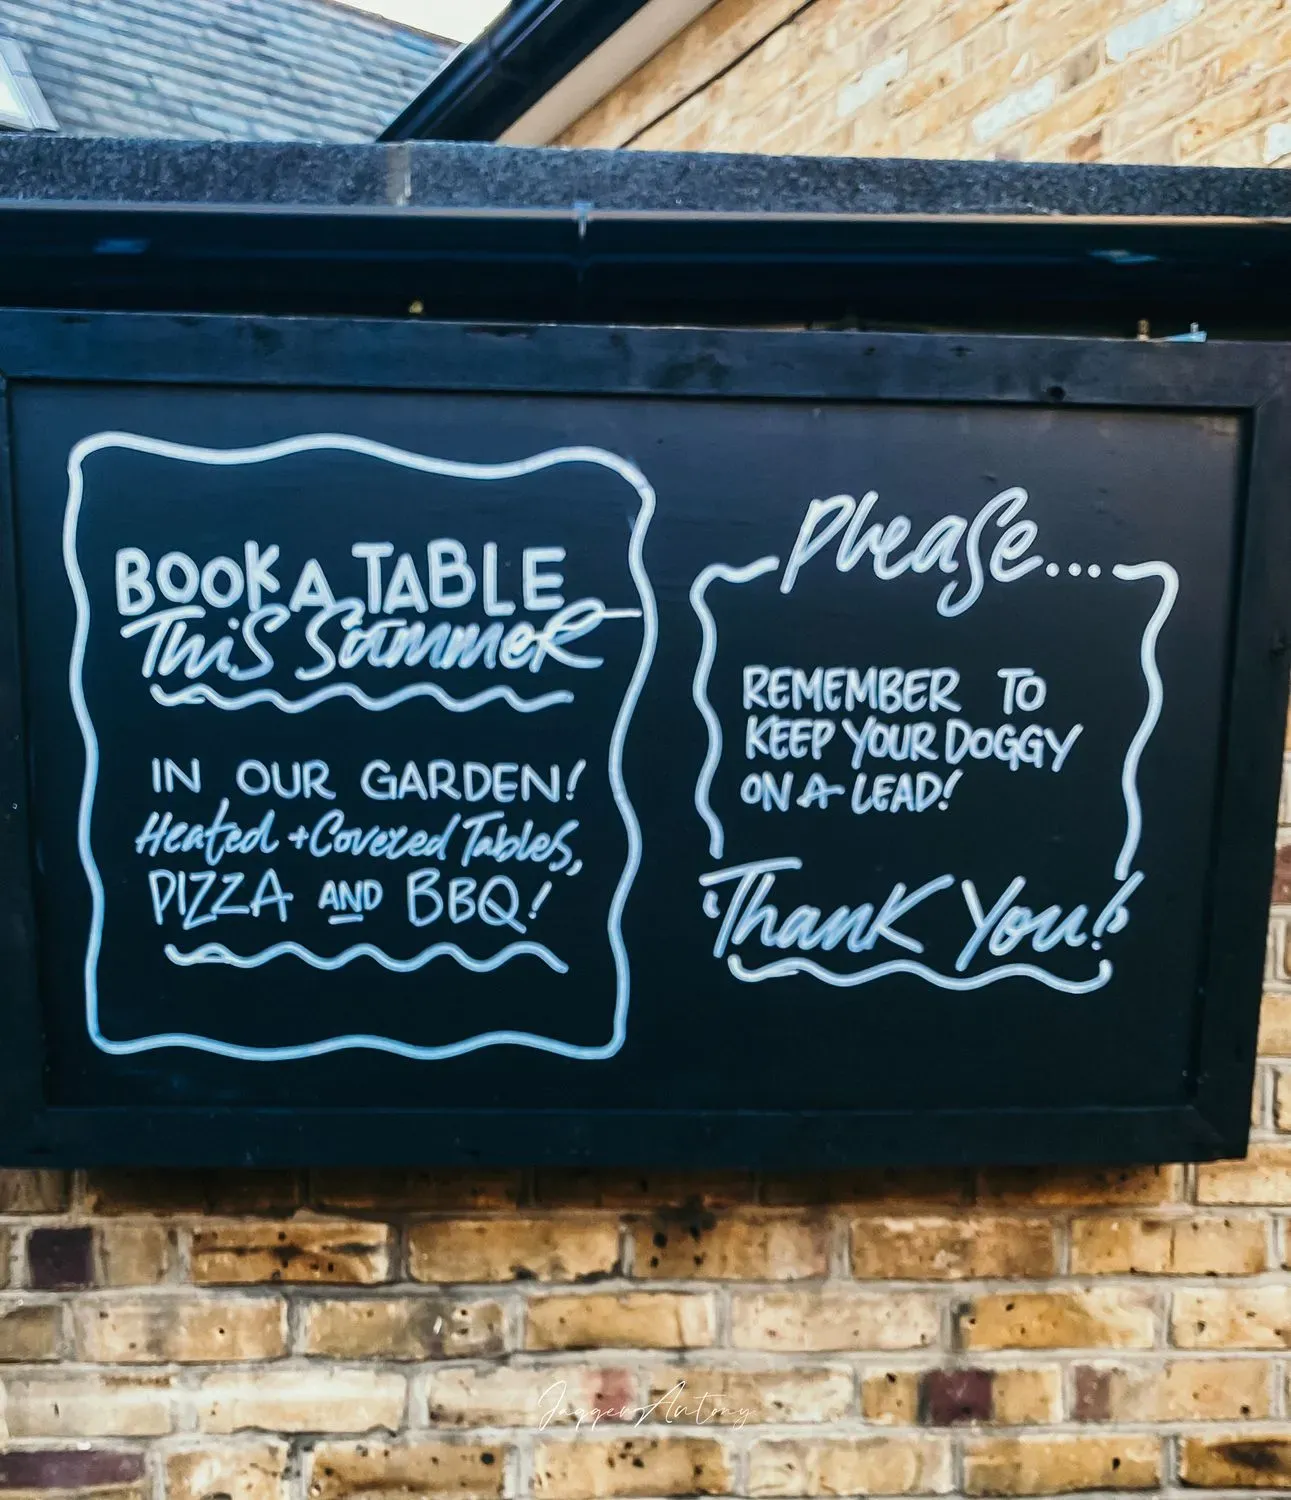 BOOK A TABLE
This Summer
IN OUR GARDEN!
Heated + Covered Tables,
PIZZA AND BBQ!
Please...
REMEMBER TO
KEEP YOUR DOGGY
ON A LEAD!
Thank You!
Jaggery Antony